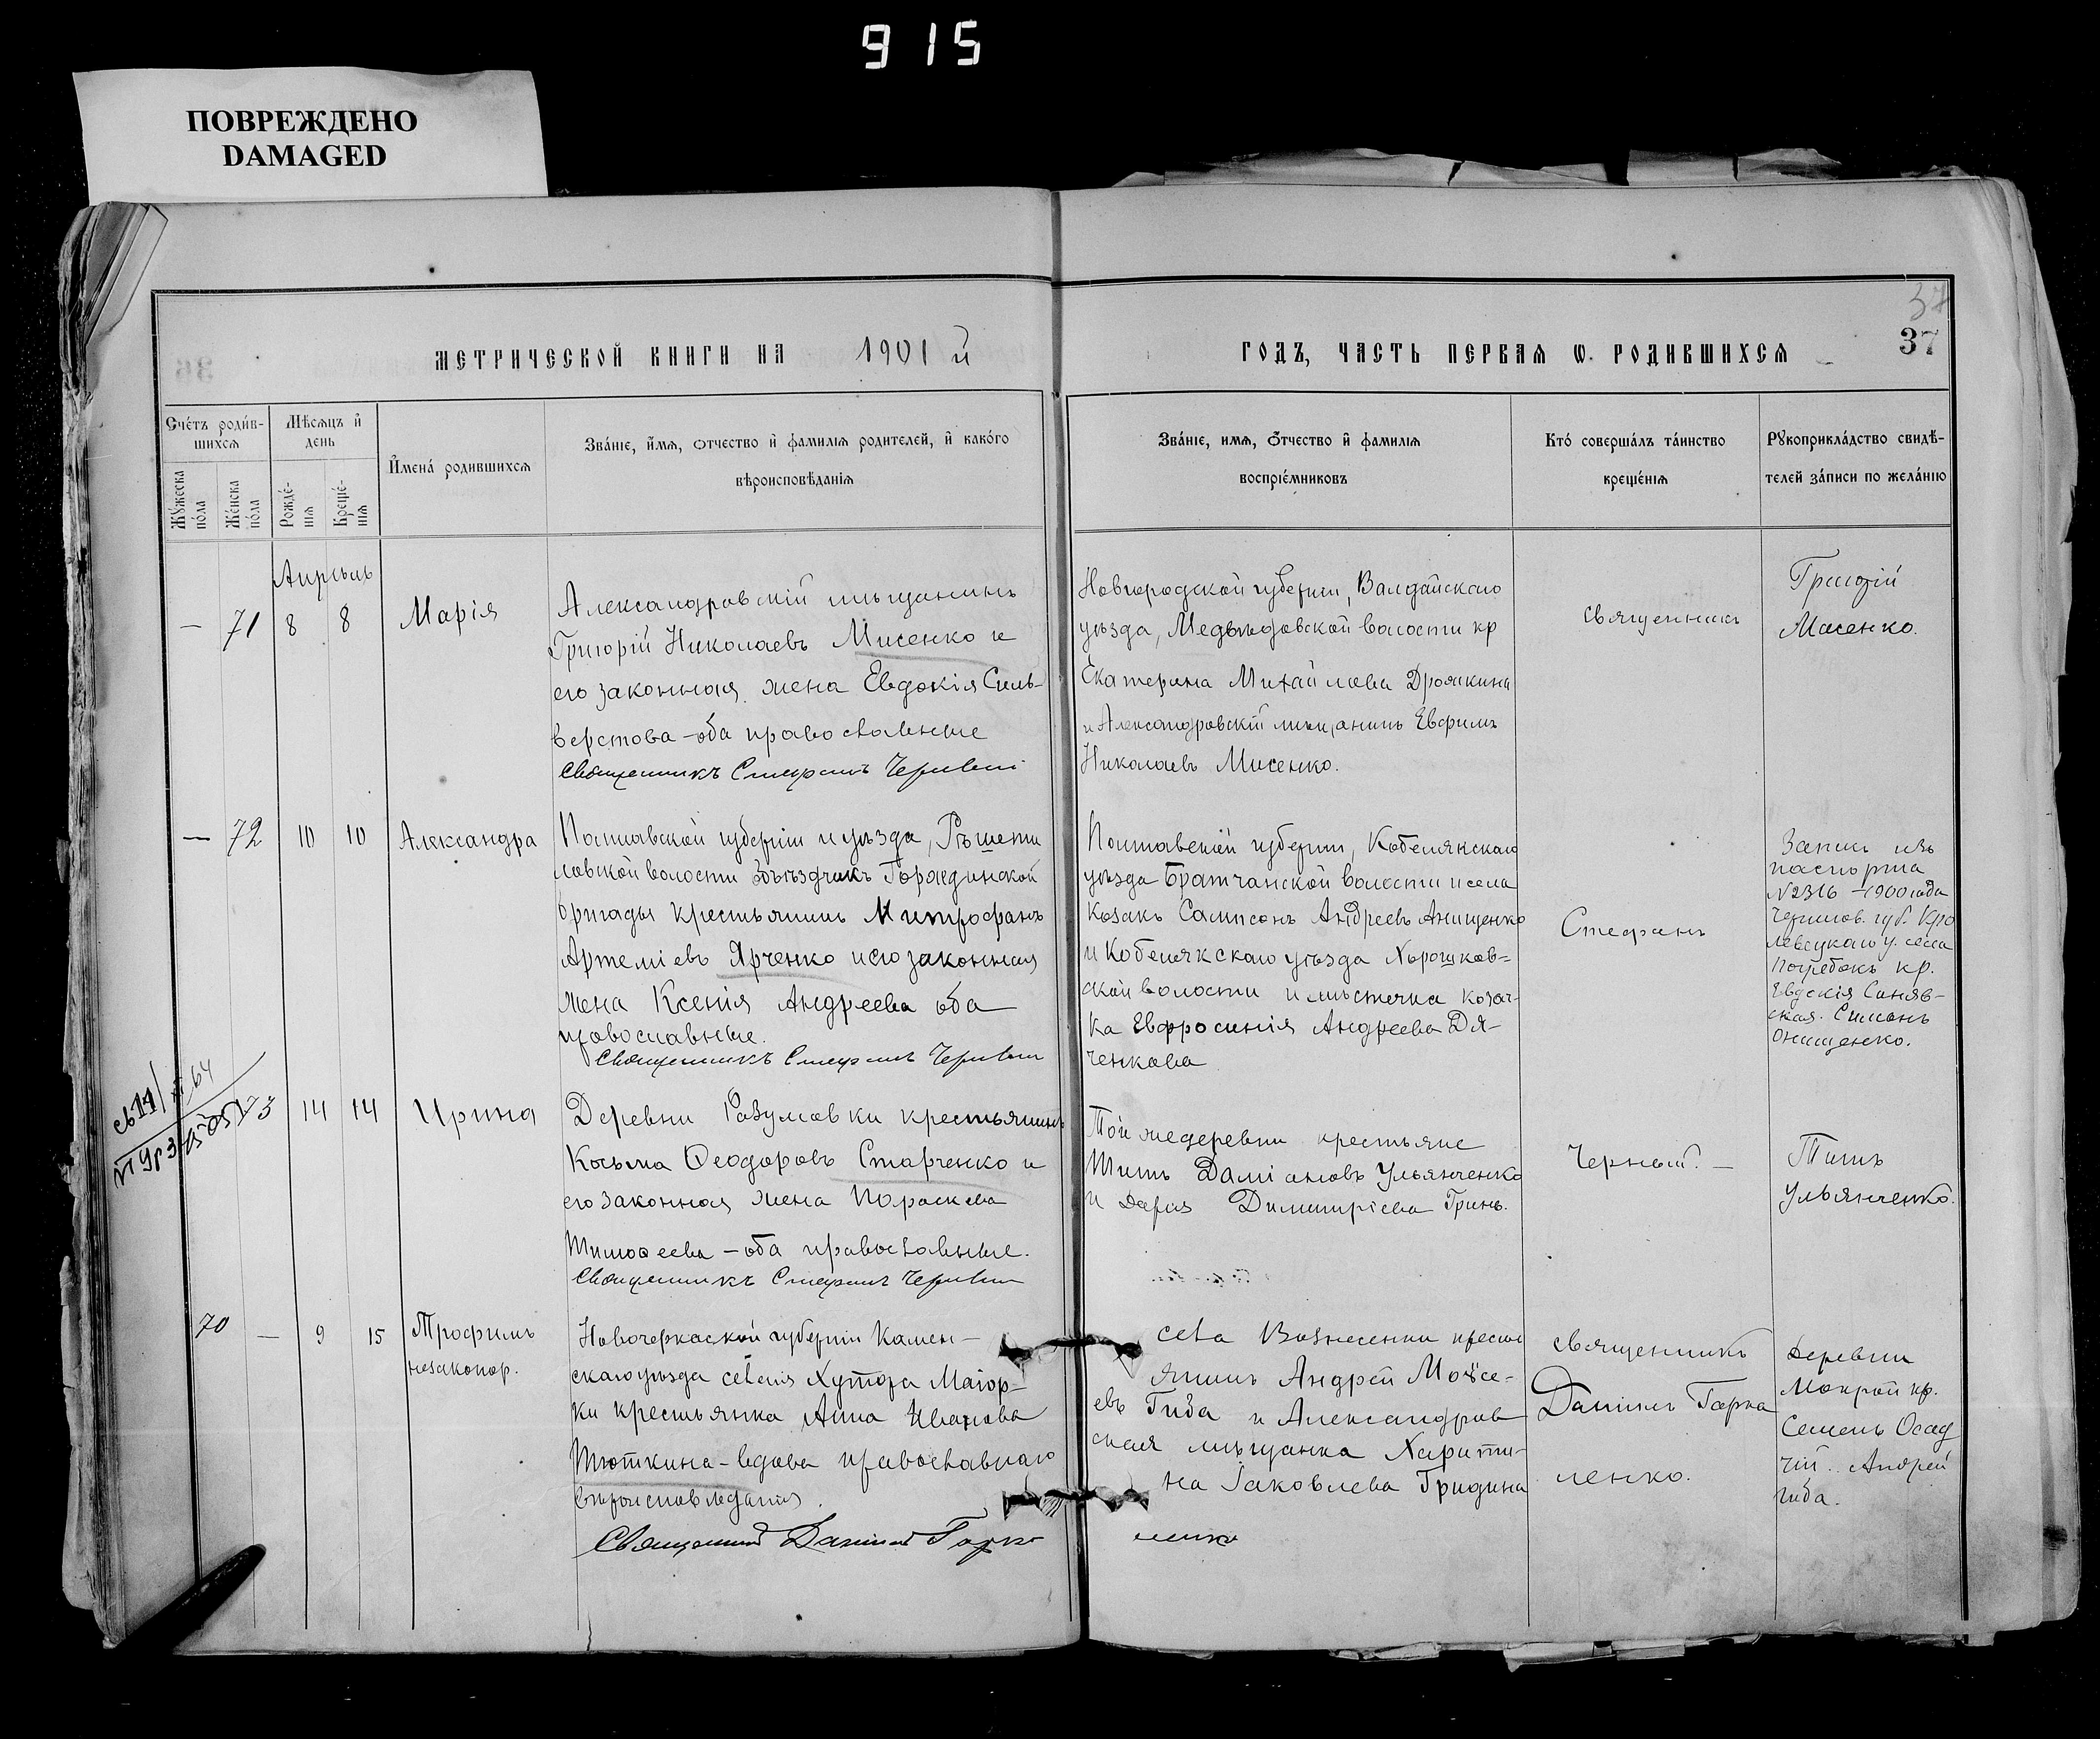 915
ПОВРЕЖДЕНО
DAMAGED
37
37
МЕТРИЧЕСКОЙ КНИГИ НА 1901 й
ГОДЪ, ЧАСТЬ ПЕРВАЯ Ѡ РОДИВШИХСЯ
Счетъ родив-
шихся
Мѣсяцъ и
день
Имена родившихся
Званіе, имя, отчество и фамилія родителей, и какого
вѣроисповѣданія
Мужеска
пола
Женска
пола
Рожде-
нія
Креще-
нія
Званіе, имя, отчество и фамилія
воспріемниковъ
Кто совершалъ таинство
крещенія
Рукоприкладство свидѣ-
телей записи по желанію
Апрѣль
— 71 8 8 Марія
Александровскій мѣщанинъ
Григорій Николаевъ Мисенко и
его законная жена Евдокія Силь-
верстова – оба православные
Священникъ Стефанъ
Новгородской губерніи, Валдайскаго
уѣзда, Медвѣдовской волости кр
Екатерина Михайлова
и Александровскій мѣщанинъ Евфимъ
Николаевъ Мисенко.
священникъ
Григорій
Мисенко.
— 72 10 10 Александра
Полтавской губерніи и уѣзда, Рѣшети
ловской волости объѣздчикъ
бригады крестьянинъ Митрофанъ
Артеміевъ Ярченко и его законная
жена Ксенія Андреева оба
православные.
Священникъ Стефанъ
Полтавской губерніи, Кобелякскаго
уѣзда Братчанской волости и села
козакъ Сампсонъ Андреевъ Анищенко
и Кобелякскаго уѣзда
ской волости и мѣстечка козач-
ка Евфросинія Андреева Дя-
ченкова
Стефанъ
Запись изъ
паспорта
№2316 – 1900 года
Чернигов. губ. Кро
левецкаго у. села
Погребокъ кр.
Евдокія Синяв-
ская. Симонъ
Онищенко.
73 14 14 Ирина
Деревни Разумовки крестьянинъ
Косьма Ѳеодоровъ Старченко и
его законная жена Параскева
Тимоѳеева – оба православные.
Священникъ Стефанъ
Той же деревни крестьяне
Титъ Даміановъ Ульянченко
и Дарія Димитріева Гринь.
Черный. —
Титъ
Ульянченко.
70 — 9 15 Трофимъ
незакон.
Новочеркаской губерніи Камен-
скаго уѣзда
ки крестьянка Анна Иванова
Тюткина – вдова православнаго
вѣроисповѣданія.
Священникъ Даніилъ Гарка
ленко
села Вознесенки кресть
янинъ Андрей Моѵсе-
евъ Гиба и Александров
ская мѣщанка Харити-
на Іаковлева Гридина
священникъ
Даніилъ Гарка
ленко.
Деревни
Мокрой кр.
Семенъ Осад
чій. Андрей
Гиба.